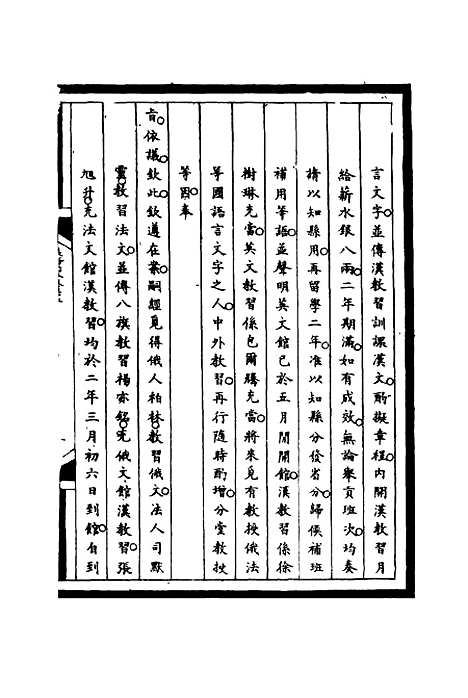 言文字並傳漢教習訓課漢文酌擬章程內開漢教習月
給薪水銀八兩二年期滿如有成效無論舉貢班次均奏
請以知縣用再留學二年准以知縣分發省分歸候補班
補用等語並聲明英文館已於五月間開館漢教習係徐
樹琳充當英文教習係包爾騰充當將來覓有教授俄法
等國語言文字之人中外教習再行隨時酌增分堂教授
等因奉
旨依議欽此欽遵在案嗣經覓得俄人柏林教習俄文法人司默
靈教習法文並傳八旗教習楊亦銘充俄文館漢教習張
旭升充法文館漢教習均於二年三月初六日到館自到